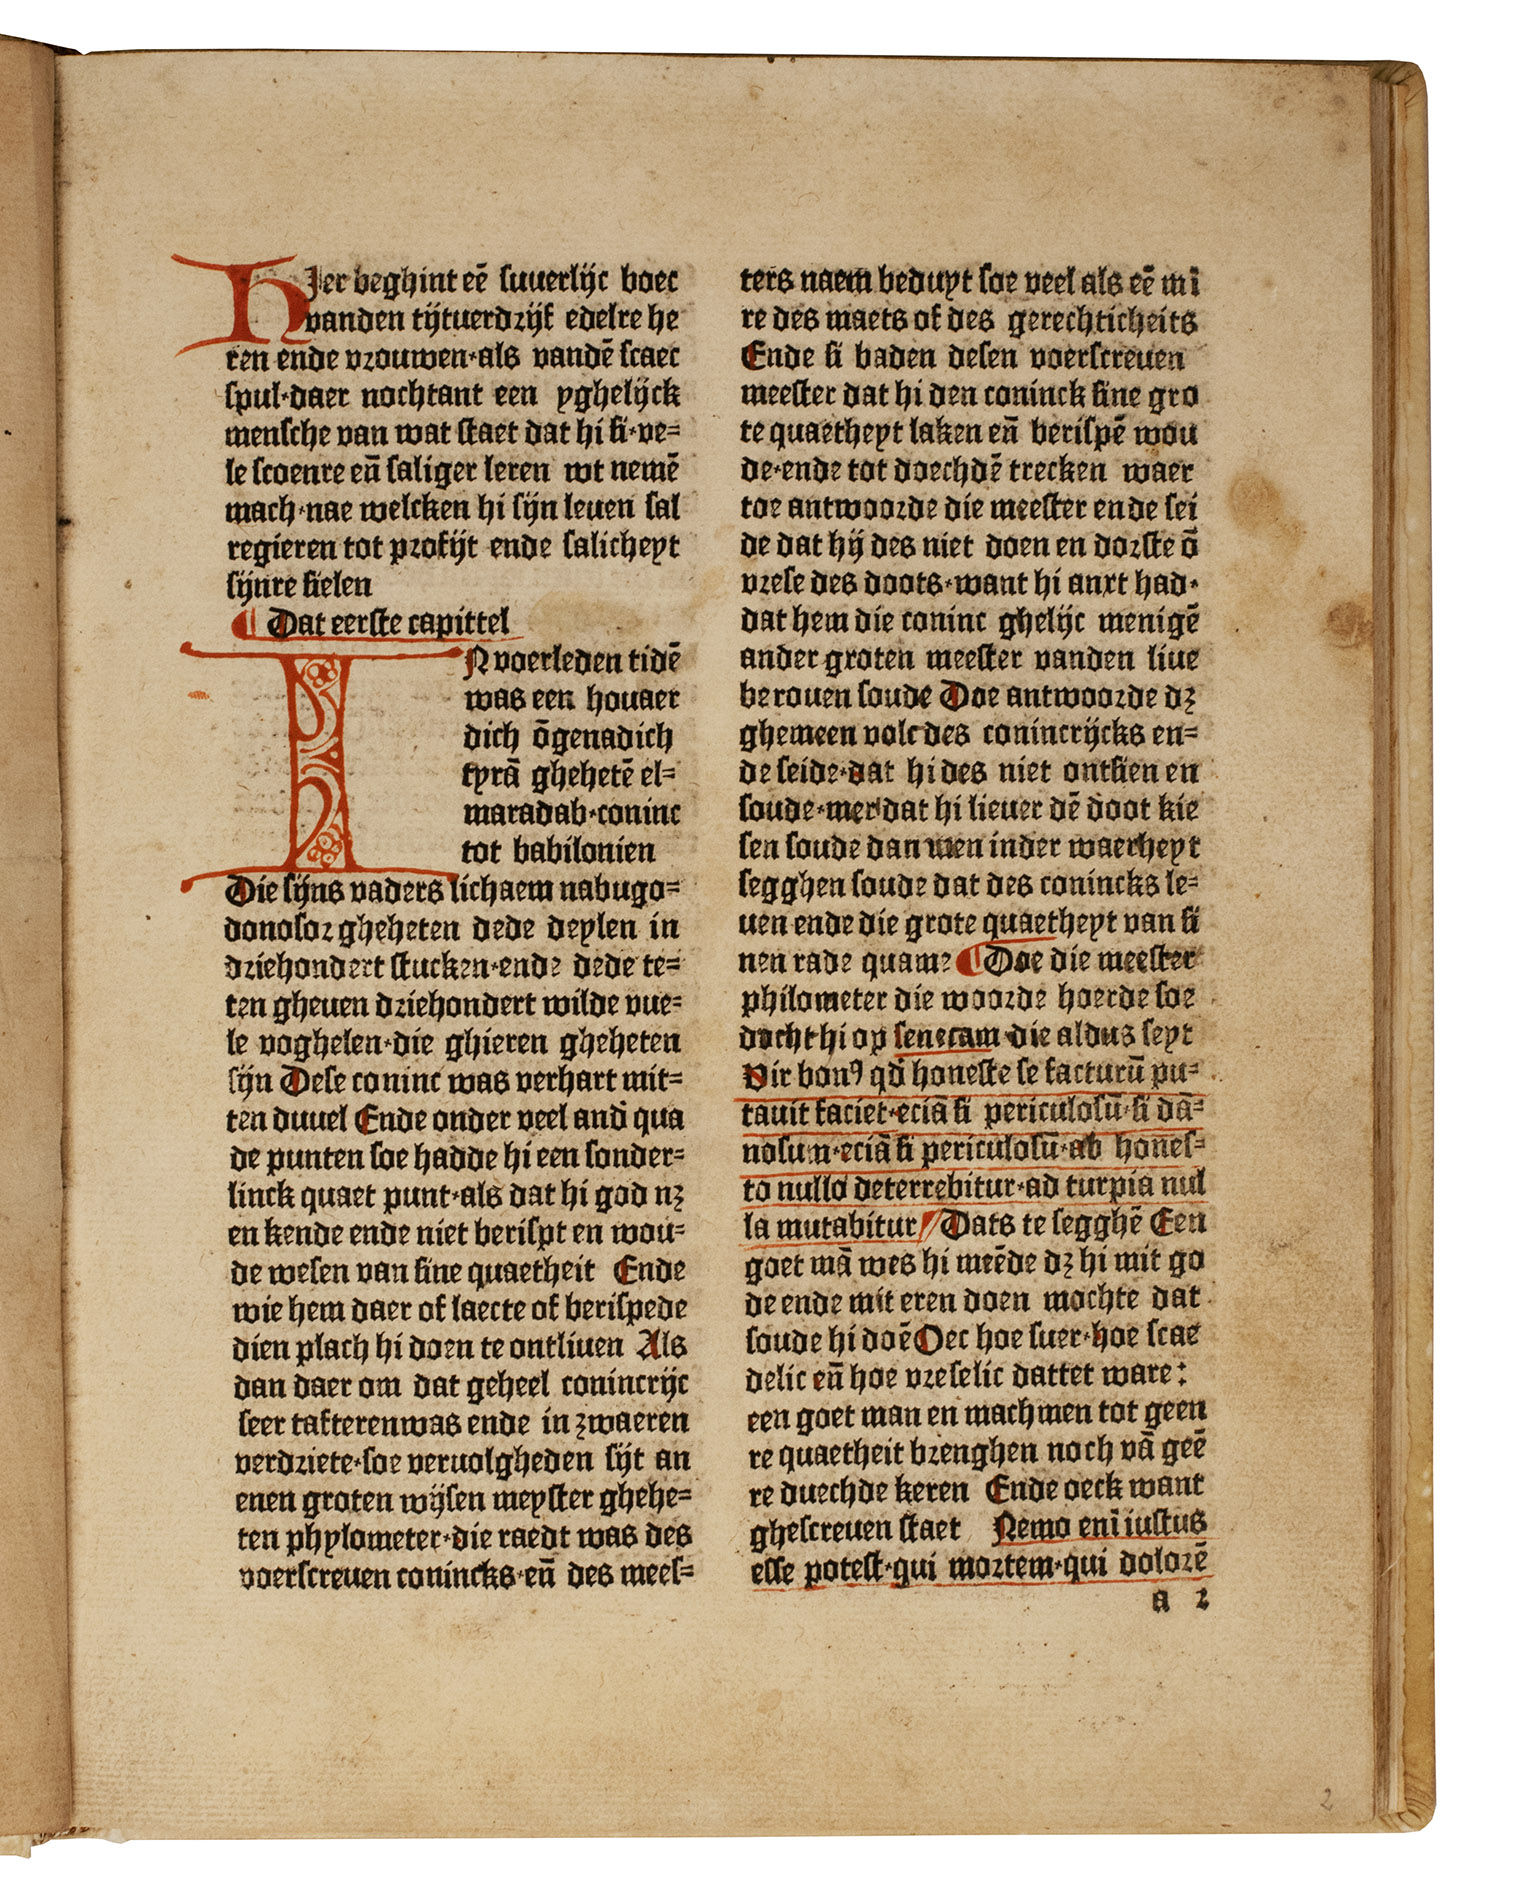 HIer beghint eē suuerlijc boec
vanden tijtuerdrijf edelre he
ren ende vrouwen·als vandē scaec
spul·daer nochtant een yghelijck
mensche van wat staet dat hi si·ve=
le scoenre eñ saliger leren wt nemē
mach·nae welcken hi sijn leuen sal
regieren tot profijt ende salicheyt
sijnre sielen
¶ Dat eerste capittel
IN voerleden tidē
was een houaer
dich ōgenadich
tyrā ghehetē el=
maradab·coninc
tot babilonien
Die sijns vaders lichaem nabugo=
donosor gheheten dede deylen in
driehondert stucken·ende dede te=
ten gheuen driehondert wilde vue=
le voghelen·die ghieren gheheten
sijn Dese coninc was verhart mit=
ten duuel Ende onder veel and̄ qua
de punten soe hadde hi een sonder=
linck quaet punt·als dat hi god nꝫ
en kende ende niet berispt en wou=
de wesen van sine quaetheit Ende
wie hem daer of laecte of berispede
dien plach hi doen te ontliuen Als
dan daer om dat geheel conincrijc
seer tafterenwas ende in zwaeren
verdriete·soe veruolgheden sijt an
enen groten wijsen meyster ghehe=
ten phylometer·die raedt was des
voerscreuen conincks·eñ des mees=
ters naem beduyt soe veel als eē mī
re des maets of des gerechticheits
Ende si baden desen voerscreuen
meester dat hi den coninck sine gro
te quaetheyt laken eñ berispē wou
de·ende tot doechdē trecken waer
toe antwoorde die meester ende sei
de dat hij des niet doen en dorste ō
vrese des doots·want hi anxt had·
dat hem die coninc ghelijc menigē
ander groten meester vanden liue
berouen soude Doe antwoorde dꝫ
ghemeen volc des conincrijcks en=
de seide·dat hi des niet ontsien en
soude·mer dat hi lieuer dē doot kie
sen soude dan men inder waerheyt
segghen soude dat des conincks le=
uen ende die grote quaetheyt van si
nen rade quame ¶ Doe die meester
philometer die woorde hoerde soe
docht hi op senecam·die aldus seyt
Vir bonꝰ qd̄ honeste se facturū pu=
tauit faciet·eciā si periculosū·si dā=
nosum·eciā si periculosū·ab hones=
to nullo deterrebitur·ad turpia nul
la mutabitur/ Dats te segghē Een
goet mā wes hi meēde dꝫ hi mit go
de ende mit eren doen mochte dat
soude hi doē Oec hoe suer·hoe scae
delic eñ hoe vreselic dattet ware:
een goet man en mach men tot geen
re quaetheit brenghen noch vā geē
re duechde keren Ende oeck want
ghescreuen staet Nemo enī iustus
esse potest·qui mortem·qui dolorē
a 2
2